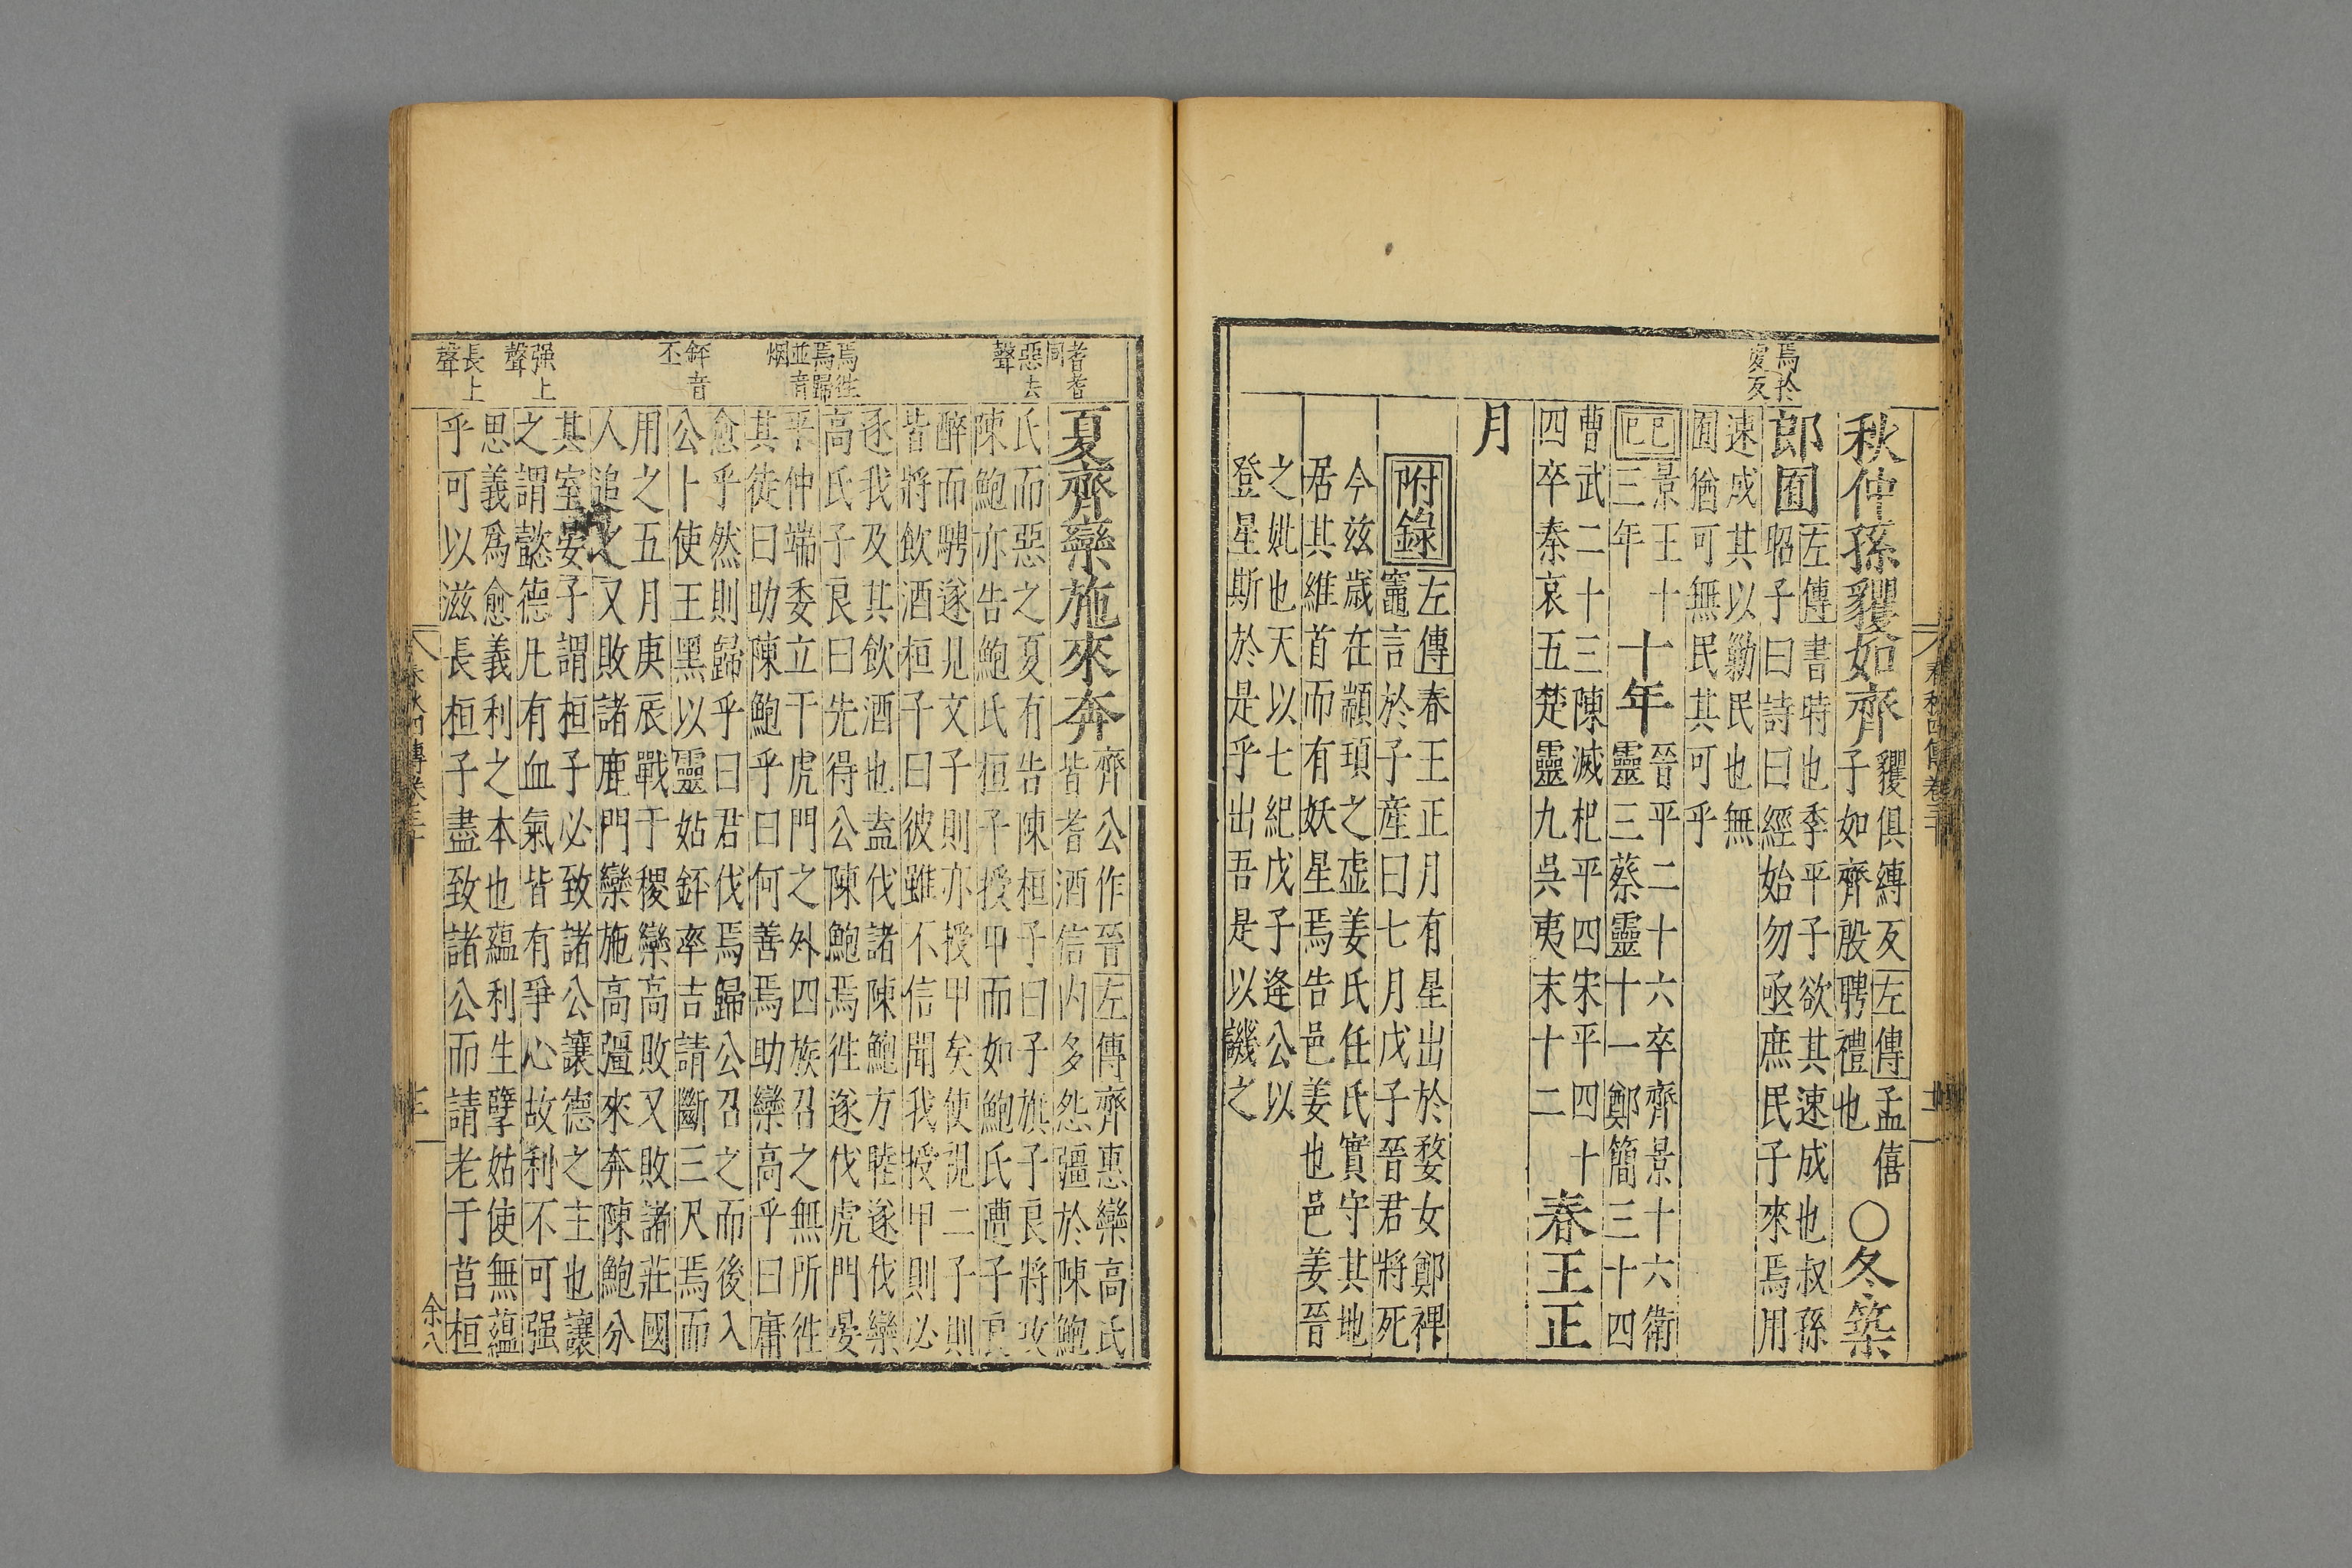 焉於
虔反
秋仲孫貜如齊
貜俱縛反左傳孟僖
子如齊殷聘禮也
○冬築
郎囿
左傳書時也季平子欲其速成也叔孫
昭子曰詩曰經始勿亟庶民子來焉用
速成其以勦民也無
囿猶可無民其可乎
己巳
景王十
三年
十年
晉平二十六卒齊景十六衛
靈三蔡靈十一鄭簡三十四
曹武二十三陳滅杞平四宋平四十
四卒秦哀五楚靈九吳夷末十二
春王正
月
附錄
左傳春王正月有星出於婺女鄭裨
竈言於子產曰七月戊子晉君將死
今兹歲在顓頊之虛姜氏任氏實守其地
居其維首而有妖星焉告邑姜也邑姜晉
之妣也天以七紀戊子逄公以
登星斯於是乎出吾是以譏之
耆耆
同
惡去
聲
焉徃
焉歸
並音
烟
鉟音
丕
强上
聲
長上
聲
夏齊欒施來奔
齊公作晉左傳齊惠欒高氏
皆耆酒信內多怨彊於陳鮑
氏而惡之夏有告陳桓子曰子旗子良將攻
陳鮑亦告鮑氏桓子授甲而如鮑氏遭子良
醉而騁遂見文子則亦授甲矣使視二子則
皆將飲酒桓子曰彼雖不信聞我授甲則必
逐我及其飲酒也盍伐諸陳鮑方睦遂伐欒
高氏子良曰先得公陳鮑焉徃遂伐虎門晏
平仲端委立于虎門之外四族召之無所徃
其徒曰助陳鮑乎曰何善焉助欒高乎曰庸
愈乎然則歸乎曰君伐焉歸公召之而後入
公卜使王黑以靈姑鉟率吉請斷三尺焉而
用之五月庚辰戰于稷欒高敗又敗諸莊國
人追之又敗諸鹿門欒施高彊來奔陳鮑分
其室晏子謂桓子必致諸公讓德之主也讓
之謂懿德凡有血氣皆有爭心故利不可强
思義爲愈義利之本也蘊利生孽姑使無蘊
乎可以滋長桓子盡致諸公而請老于莒桓
余八